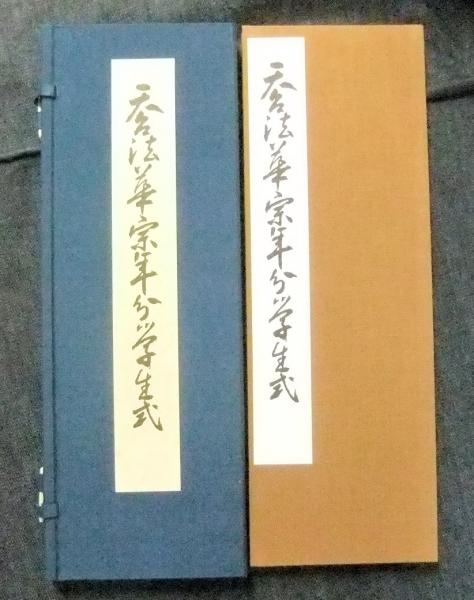 天台法華宗年分学生式
天台法華宗年分学生式